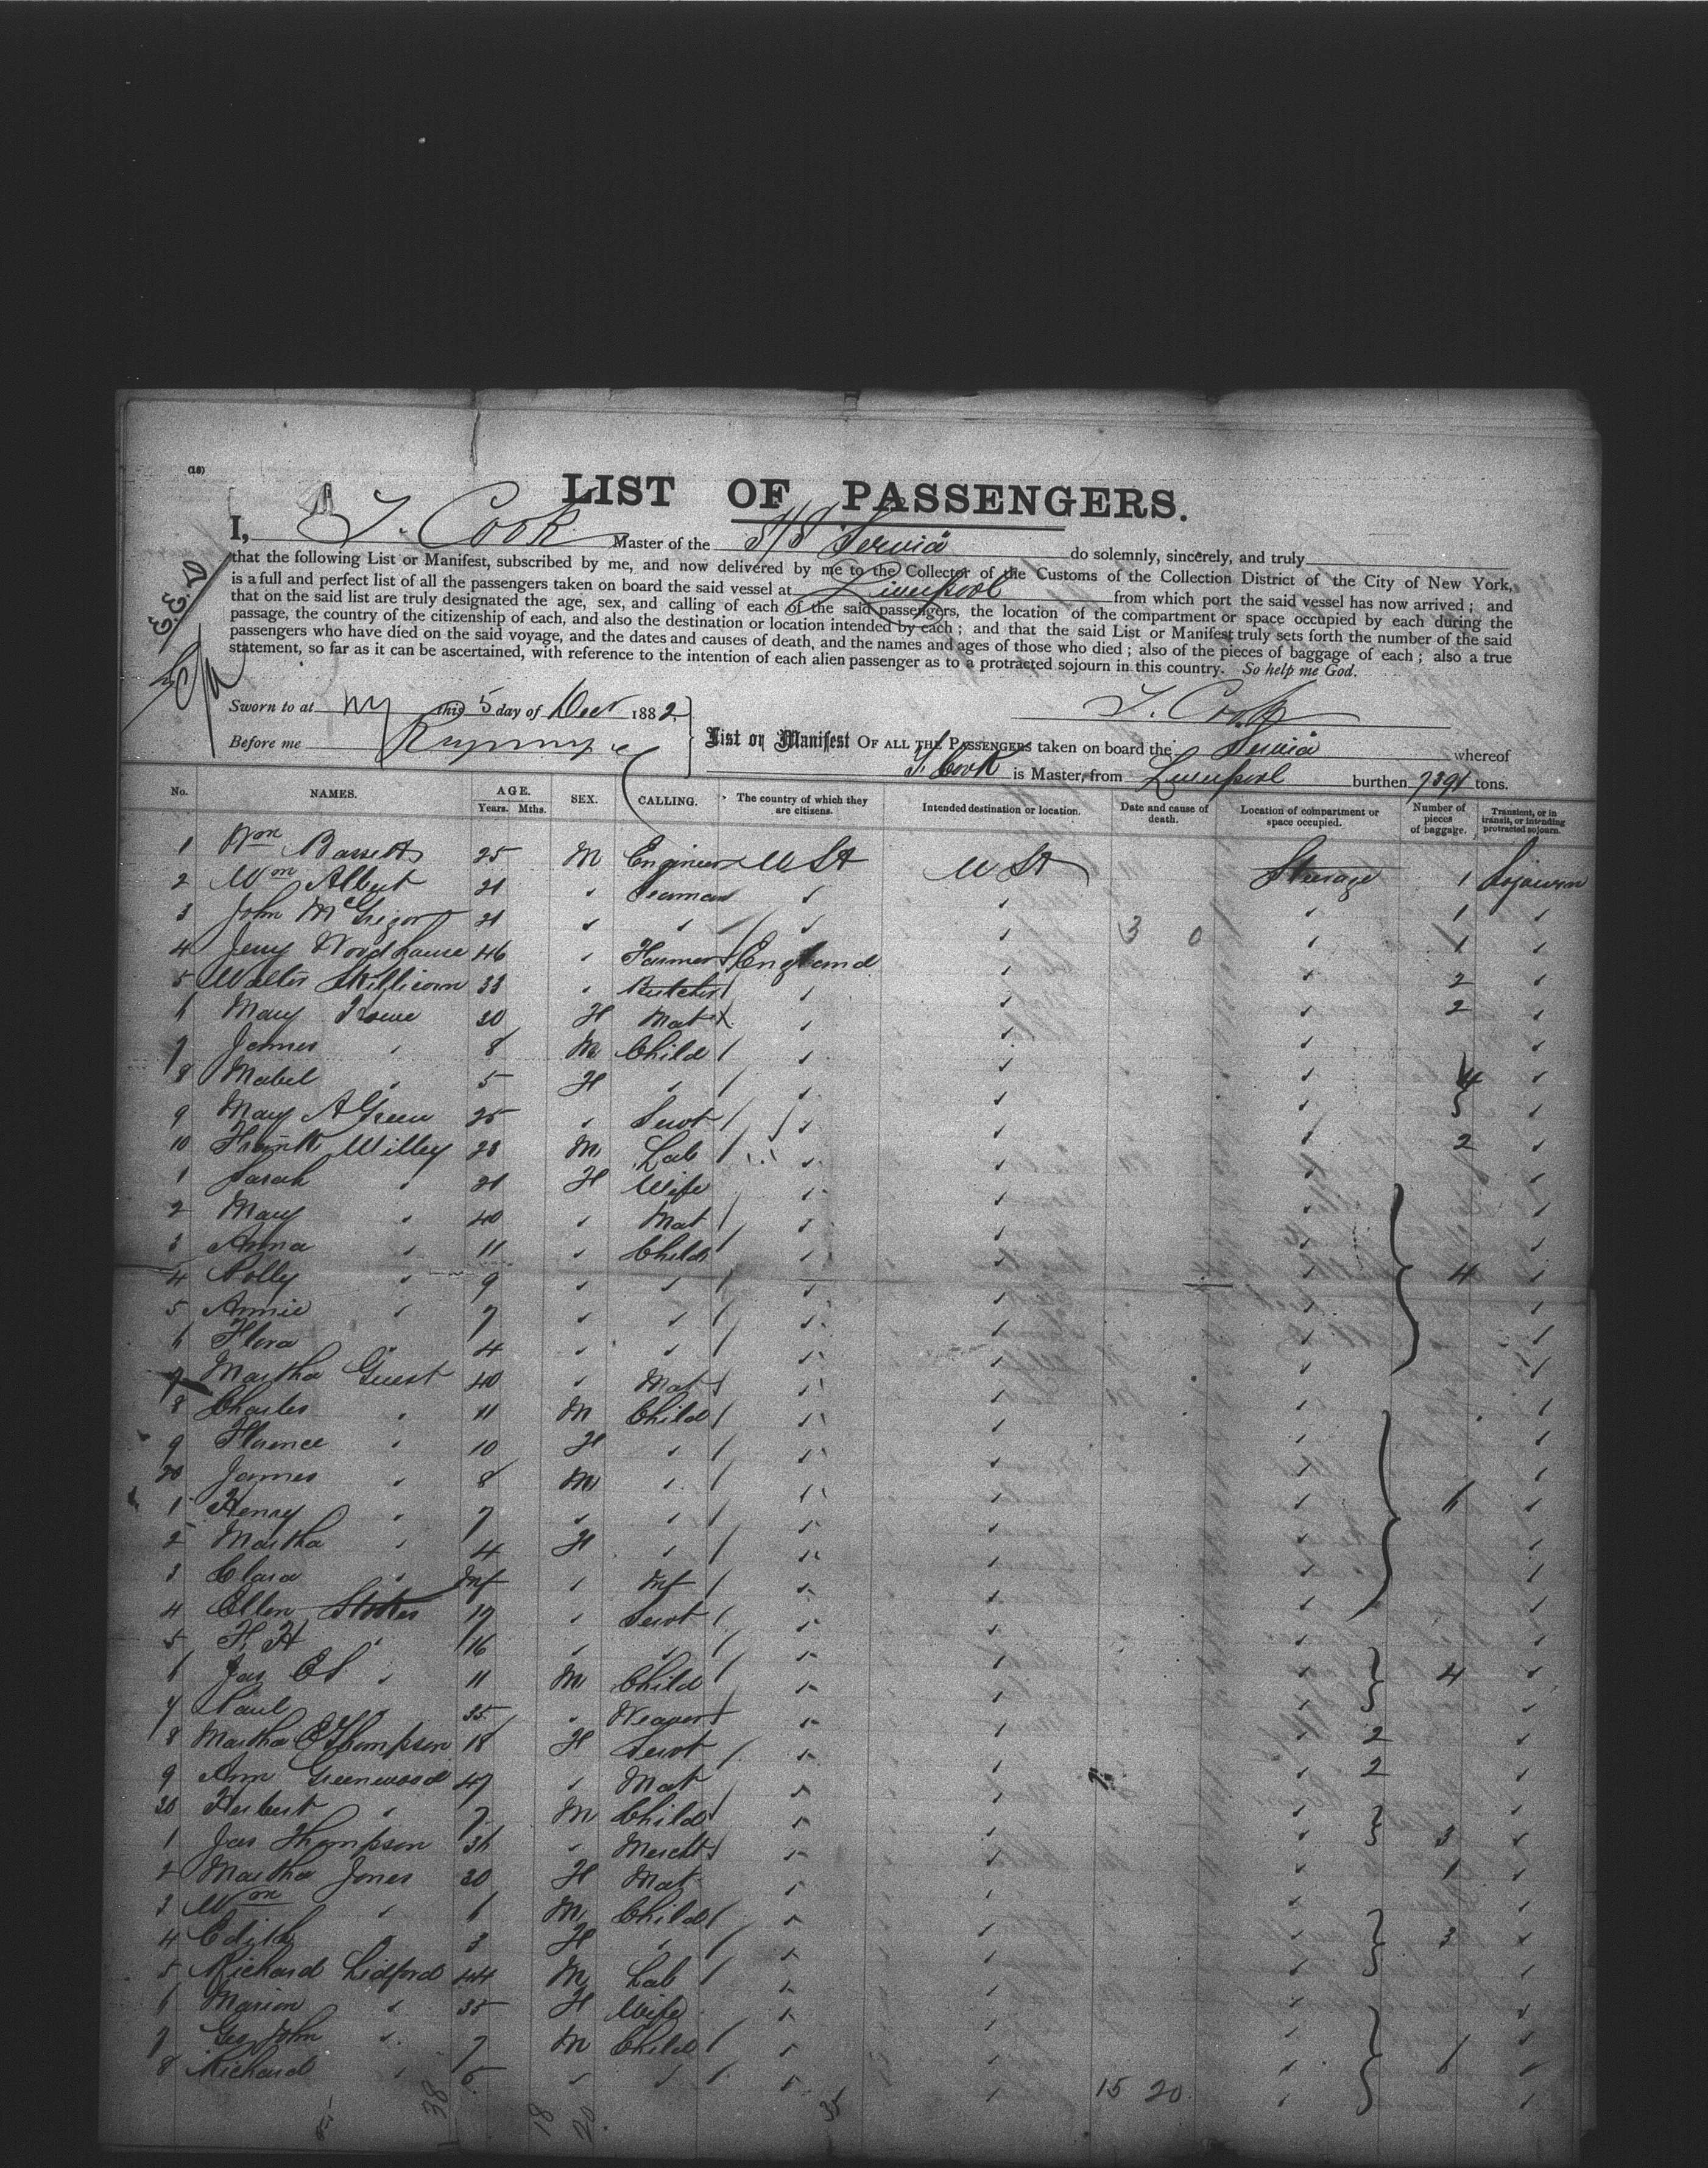 (18)
LIST OF PASSENGERS.
I, T. Cook Master of the S/S Servia do solemnly, sincerely, and truly
that the following List or Manifest, subscribed by me, and now delivered by me to the Collector of the Customs of the Collection District of the City of New York,
is a full and perfect list of all the passengers taken on board the said vessel at Liverpool from which port the said vessel has now arrived; and
that on the said list are truly designated the age, sex, and calling of each of the said passengers, the location of the compartment or space occupied by each during the
passage, the country of the citizenship of each, and also the destination or location intended by each; and that the said List or Manifest truly sets forth the number of the said
passengers who have died on the said voyage, and the dates and causes of death, and the names and ages of those who died; also of the pieces of baggage of each; also a true
statement, so far as it can be ascertained, with reference to the intention of each alien passenger as to a protracted sojourn in this country. So help me God.
Sworn to at NY this 5 day of Decr 1882, T. Cook
Before me
List or Manifest OF ALL THE PASSENGERS taken on board the Servia whereof
T. Cook is Master, from Liverpool burthen 7391 tons.
No. NAMES. AGE. Years. Mths. SEX. CALLING. The country of which they are citizens. Intended destination or location. Date and cause of death. Location of compartment or space occupied. Number of pieces of baggage. Transient, or in transit, or intending protracted sojourn.
1 Wm Bassett 25 M Engineer U St U St Steerage 1 Sojourn
2 Wm Albert 21 " Seaman " " " 1 "
3 John McGregor 21 " " " " 3 0 " 1 "
4 Jerry Woodhouse 46 " Farmer England " " 2 "
5 Walter Skillicorn 33 " Butcher " " " 2 "
6 Mary Rowe 30 F Mat " " " "
7 James " 8 M Child " " " 4 "
8 Mabel " 5 F " " " " "
9 Mary A Green 25 " Servt " " " 2 "
10 Frank Willey 28 M Lab " " " "
1 Sarah " 21 F Wife " " " "
2 Mary " 40 " Mat " " " "
3 Anna " 11 " Child " " " 4 "
4 Polly " 9 " " " " " "
5 Annie " 7 " " " " " "
6 Flora " 4 " " " " " "
7 Martha Guest 40 " Mat " " " "
8 Charles " 11 M Child " " " "
9 Florence " 10 F " " " " "
20 James " 8 M " " " " 6 "
1 Henry " 7 " " " " " "
2 Martha " 4 F " " " " "
3 Clara " Inf " Inf " " " "
4 Ellen Stokes 17 " Servt " " " "
5 F. H " 16 " " " " " 4 "
6 Jas " 11 M Child " " " "
7 Paul 35 " Weaver " " " 2 "
8 Martha E Thompson 18 F Servt " " " 2 "
9 Ann Greenwood 47 " Mat " " " "
30 Herbert " 7 M Child " " " 3 "
1 Jas Thompson 36 " Mercht " " " 1 "
2 Martha Jones 30 F Mat " " " "
3 Wm " 6 M Child " " " 3 "
4 Edith " 3 F " " " " "
5 Richard Lidford 44 M Lab " " " "
6 Marion " 35 F Wife " " " "
7 Geo John " 7 M Child " " " 6 "
8 Richard " 5 " " " " " "
15 20
38
18 20
35